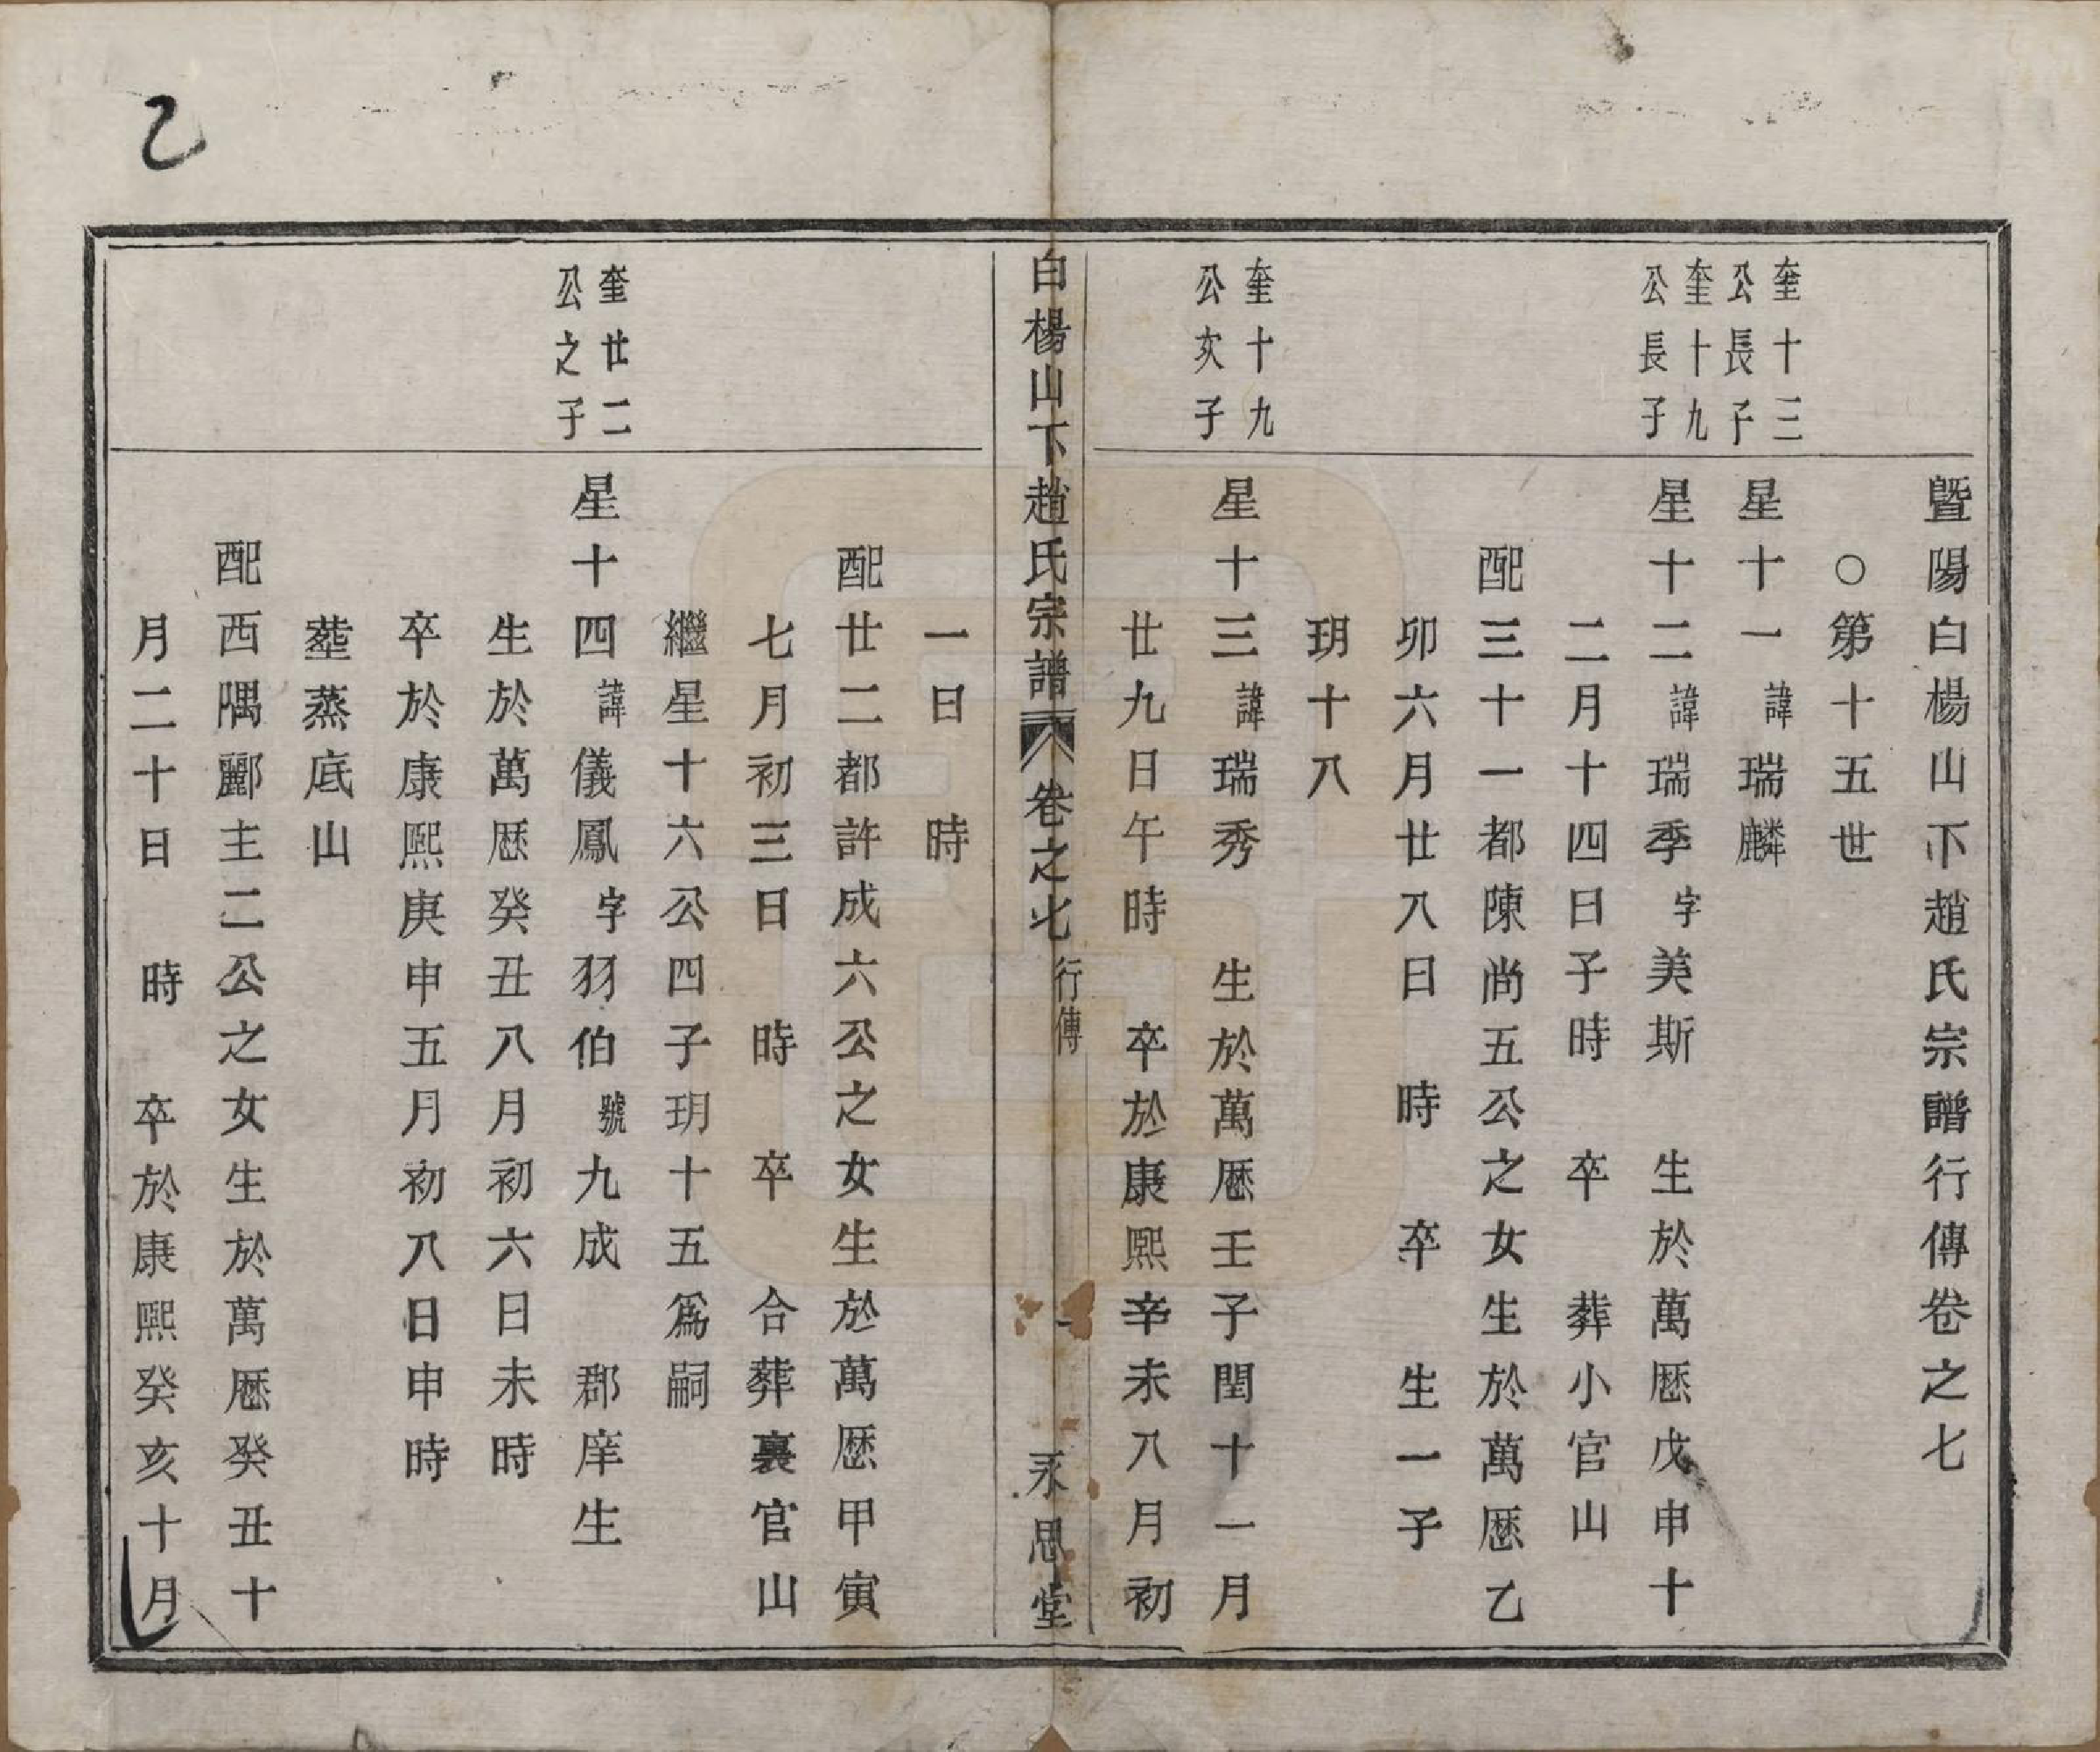 乙
暨陽白楊山下趙氏宗譜行傳卷之七
○第十五世
奎十三
公長子
星十一諱瑞麟
奎十九
公長子
星十二諱瑞季字美斯　生於萬歷戊申十
二月十四日子時　卒　葬小官山
配三十一都陳尚五公之女生於萬歷乙
卯六月廿八日　時　卒　生一子
玥十八
奎十九
公次子
星十三諱瑞秀　生於萬歷壬子閏十一月
廿九日午時　卒於康熙辛未八月初
白楊山下趙氏宗譜　卷之七　行傳　一　永思堂
一日　時
配廿二都許成六公之女生於萬歷甲寅
七月初三日　時　卒　合葬裏官山
繼星十六公四子玥十五爲嗣
奎廿二
公之子
星十四諱儀鳳字羽伯號九成　郡庠生
生於萬歷癸丑八月初六日未時
卒於康熙庚申五月初八日申時
塟蒸底山
配西隅酈主二公之女生於萬歷癸丑十
月二十日　時　卒於康熙癸亥十月